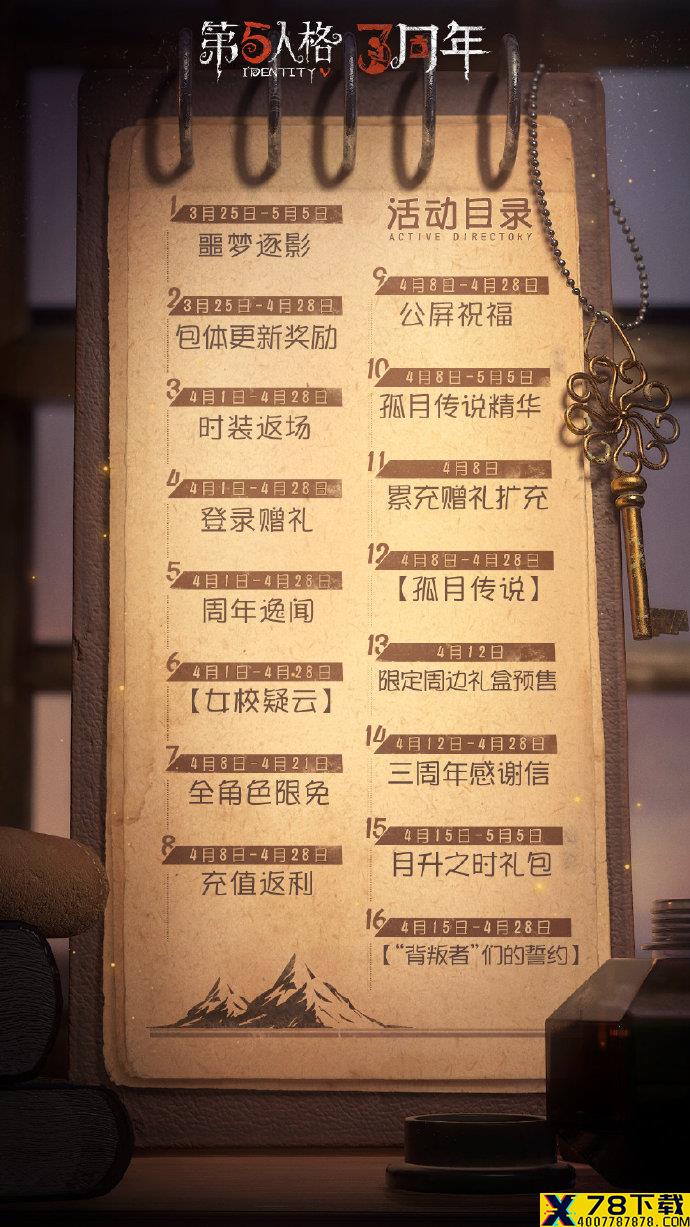 第5人格 3周年
IDENTITY V
活动目录
ACTIVE DIRECTORY
1
3月25日-5月5日
噩梦逐影
2
3月25日-4月28日
包体更新奖励
3
4月1日-4月28日
时装返场
4
4月1日-4月28日
登录赠礼
5
4月1日-4月28日
周年逸闻
6
4月1日-4月28日
【女校疑云】
7
4月8日-4月21日
全角色限免
8
4月8日-4月28日
充值返利
9
4月8日-4月28日
公屏祝福
10
4月8日-5月5日
孤月传说精华
11
4月8日
累充赠礼扩充
12
4月8日-4月28日
【孤月传说】
13
4月12日
限定周边礼盒预售
14
4月12日-4月28日
三周年感谢信
15
4月15日-5月5日
月升之时礼包
16
4月15日-4月28日
【“背叛者”们的誓约】
78下载
4007787878.COM